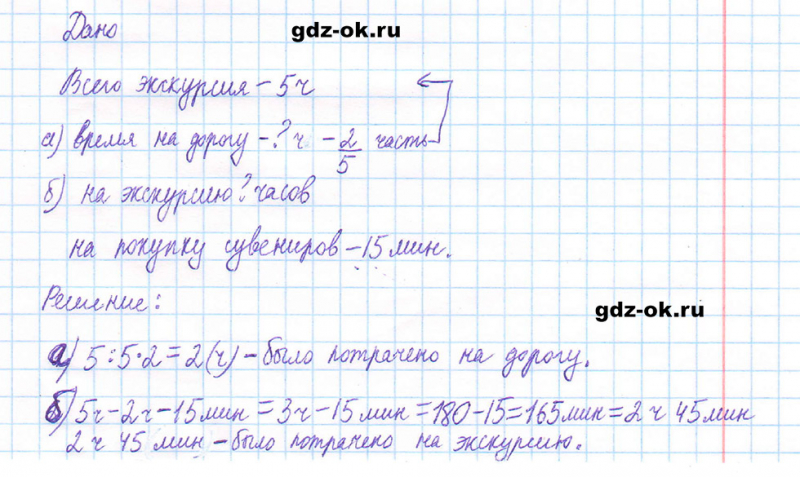 Дано
gdz-ok.ru
Всего экскурсия – 5ч
а) время на дорогу – ? ч – 2/5 часть
б) на экскурсию ? часов
на покупку сувениров – 15 мин.
Решение:
gdz-ok.ru
а) 5 : 5 · 2 = 2 (ч) – было потрачено на дорогу.
б) 5ч – 2ч – 15 мин = 3ч – 15 мин = 180 – 15 = 165 мин = 2 ч 45 мин
2 ч 45 мин – было потрачено на экскурсию.